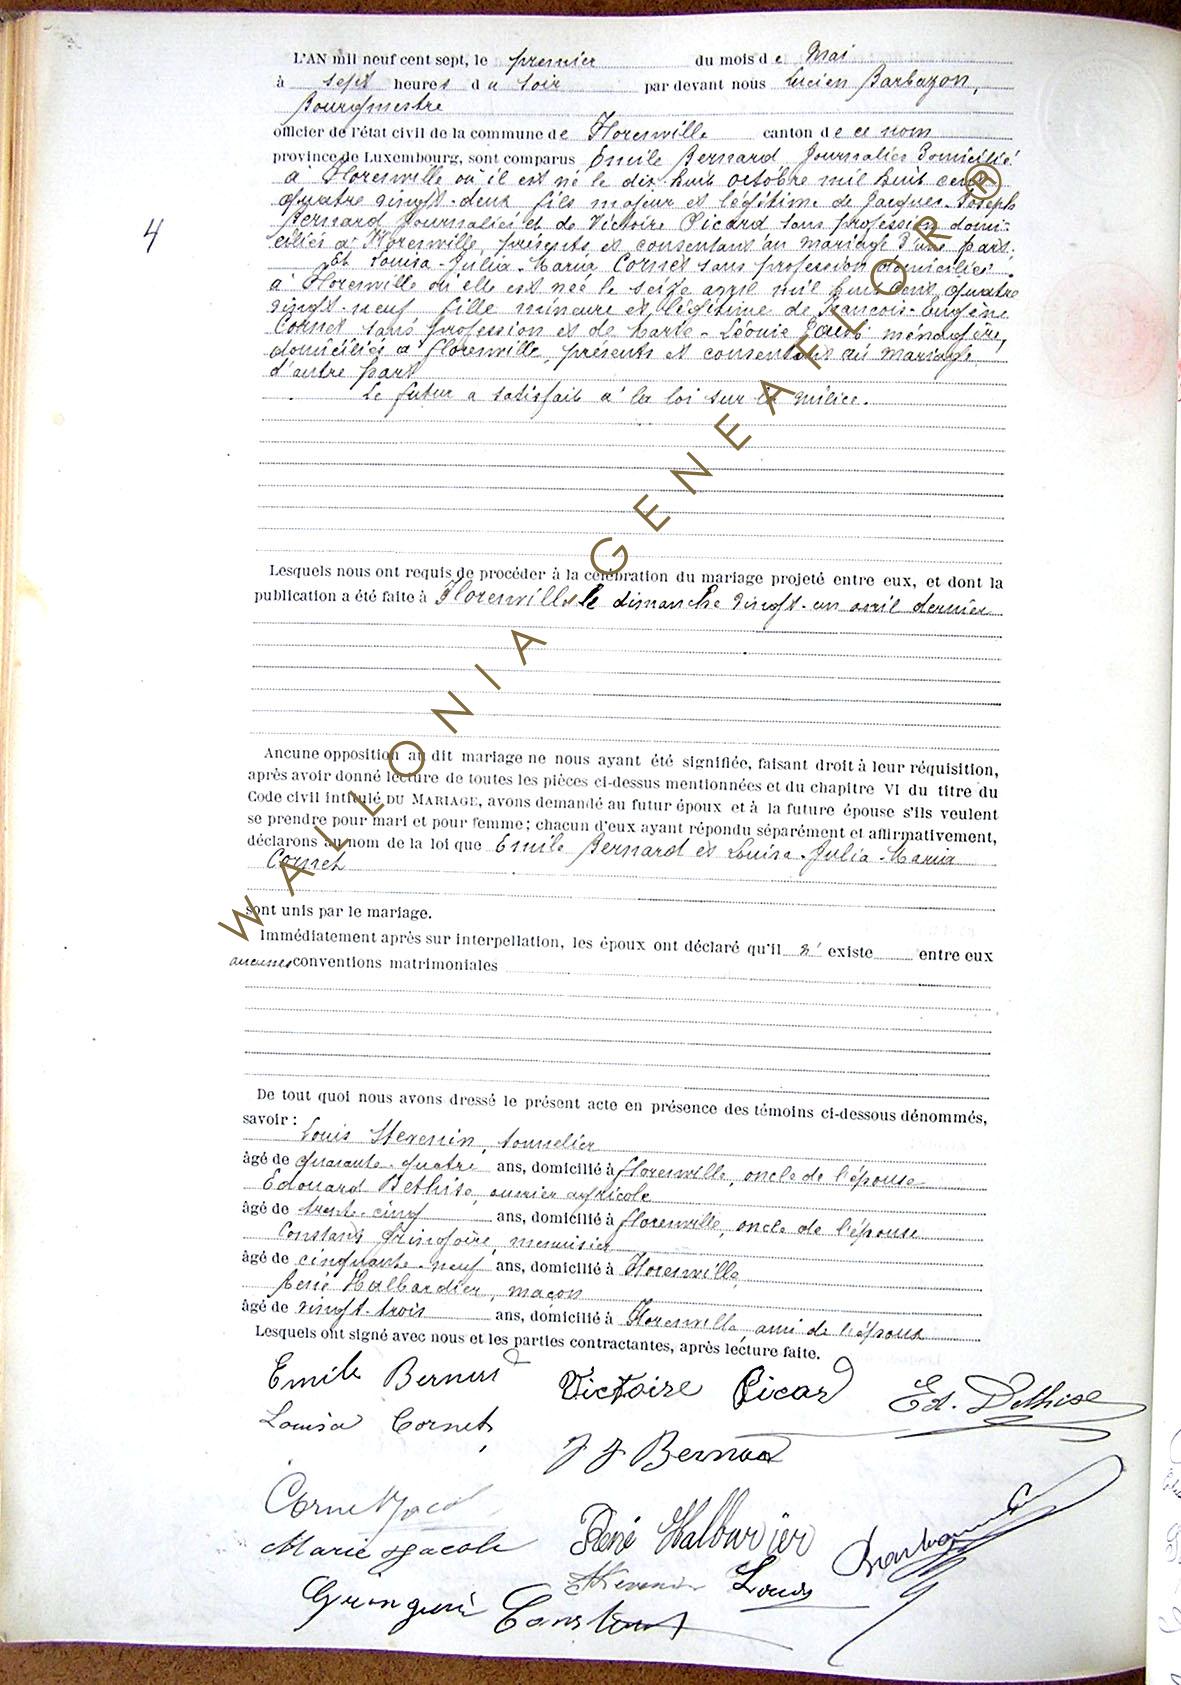 L'AN mil neuf cent sept, le premier du mois de Mai
à sept heures du soir par devant nous Lucien Barbazon,
Bourgmestre
officier de l'état civil de la commune de Florenville canton de ce nom
province de Luxembourg, sont comparus Emile Bernard Journalier domicilié
à Florenville où il est né le dix-huit octobre mil huit cent
quatre vingt-deux fils majeur et légitime de Jacques-Joseph
Bernard Journalier et de Victoire Picard sans profession domi-
4
ciliés à Florenville, présents et consentant au mariage d'une part;
Et Louisa-Julia-Maria Cornet sans profession domiciliée
à Florenville où elle est née le seize avril mil huit cent quatre
vingt-neuf fille mineure et légitime de François-Eugène
Cornet sans profession et de Marie-Léonie Jacob ménagère,
domiciliés à Florenville, présents et consentant au mariage
d'autre part
Le futur a satisfait à la loi sur la milice.
Lesquels nous ont requis de procéder à la célébration du mariage projeté entre eux, et dont la
publication a été faite à Florenville le dimanche vingt-un avril dernier
Aucune opposition au dit mariage ne nous ayant été signifiée, faisant droit à leur réquisition,
après avoir donné lecture de toutes les pièces ci-dessus mentionnées et du chapitre VI du titre du
Code civil intitulé DU MARIAGE, avons demandé au futur époux et à la future épouse s'ils veulent
se prendre pour mari et pour femme; chacun d'eux ayant répondu séparément et affirmativement,
déclarons au nom de la loi que Emile Bernard et Louisa-Julia-Maria
Cornet
sont unis par le mariage.
Immédiatement après sur interpellation, les époux ont déclaré qu'il n' existe entre eux
aucunes conventions matrimoniales
De tout quoi nous avons dressé le présent acte en présence des témoins ci-dessous dénommés,
savoir : Louis Stevenin, tonnelier
âgé de quarante-quatre ans, domicilié à Florenville, oncle de l'épouse
Edouard Dethise, ouvrier agricole
âgé de trente-cinq ans, domicilié à Florenville, oncle de l'épouse
Constant Gringoire, menuisier
âgé de cinquante-neuf ans, domicilié à Florenville
René Halbardier, maçon
âgé de vingt-trois ans, domicilié à Florenville, ami de l'époux
Lesquels ont signé avec nous et les parties contractantes, après lecture faite.
Emile Bernard Victoire Picard Ed. Dethise
Louisa Cornet
J J Bernard
Cornet Jacob
Marie Jacob René Halbardier Barbazon
Stevenin Louis
Gringoire Constant
WALLONIA GENEAFLOR ®